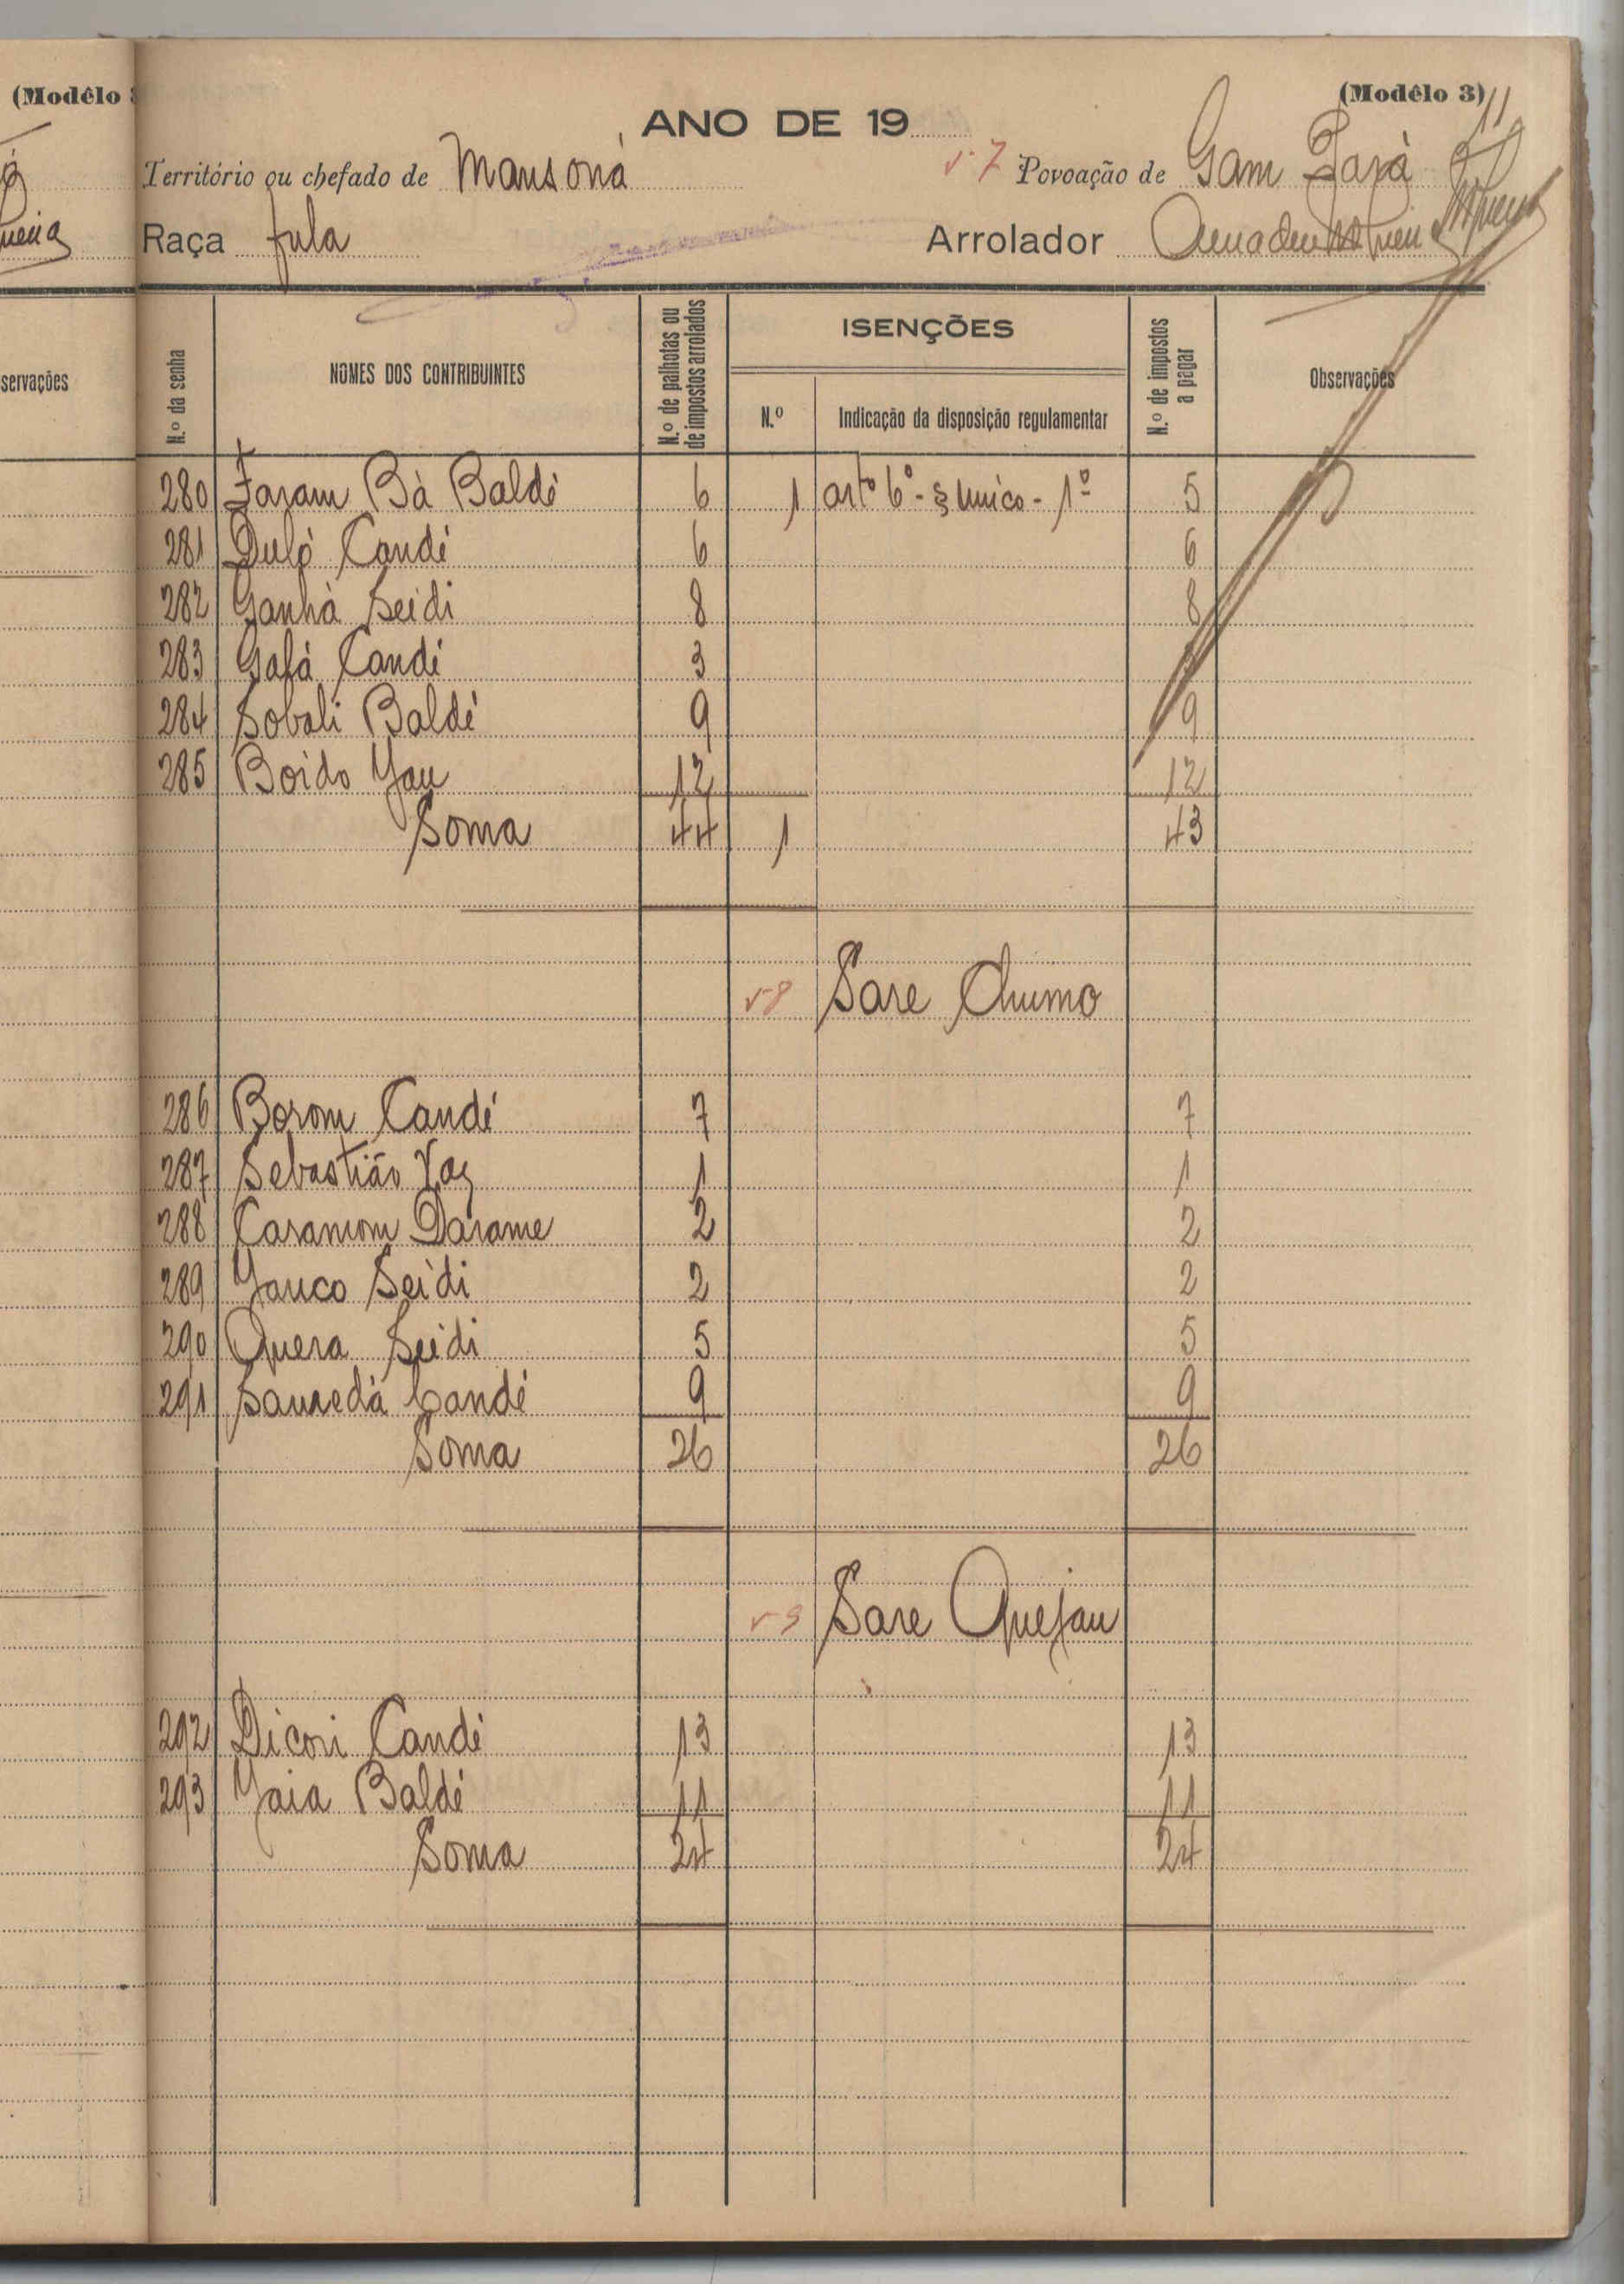 (Modêlo
(Modêlo 3)
11
ANO DE 19
Território ou chefado de Mansoná v. 7 Povoação de Gam
Raça fula Arrolador
servações
N.º da senha
NOMES DOS CONTRIBUINTES
N.º de palhotas ou de impostos arrolados
ISENÇÕES
N.º
Indicação da disposição regulamentar
N.º de impostos a pagar
Observações
280 Faram Bà Baldé 6 1 artº 6º - § unico - 1º 5
281 Duló Candé 6 6
282 Ganhà Seidi 8 8
283 Gafà Candé 3
284 Sobali Baldé 9 9
285 Boido Yau 12 12
Soma 44 1 43
v 8 Sare Chumo
286 Borom Candé 7 7
287 Sebastião Vaz 1 1
288 Caramom Darame 2 2
289 Yauco Seidi 2 2
290 Quera Seidi 5 5
291 Sauredà Candé 9 9
Soma 26 26
v 9 Sare Quejau
292 Dicori Candé 13 13
293 Yaia Baldé 11 11
Soma 24 24